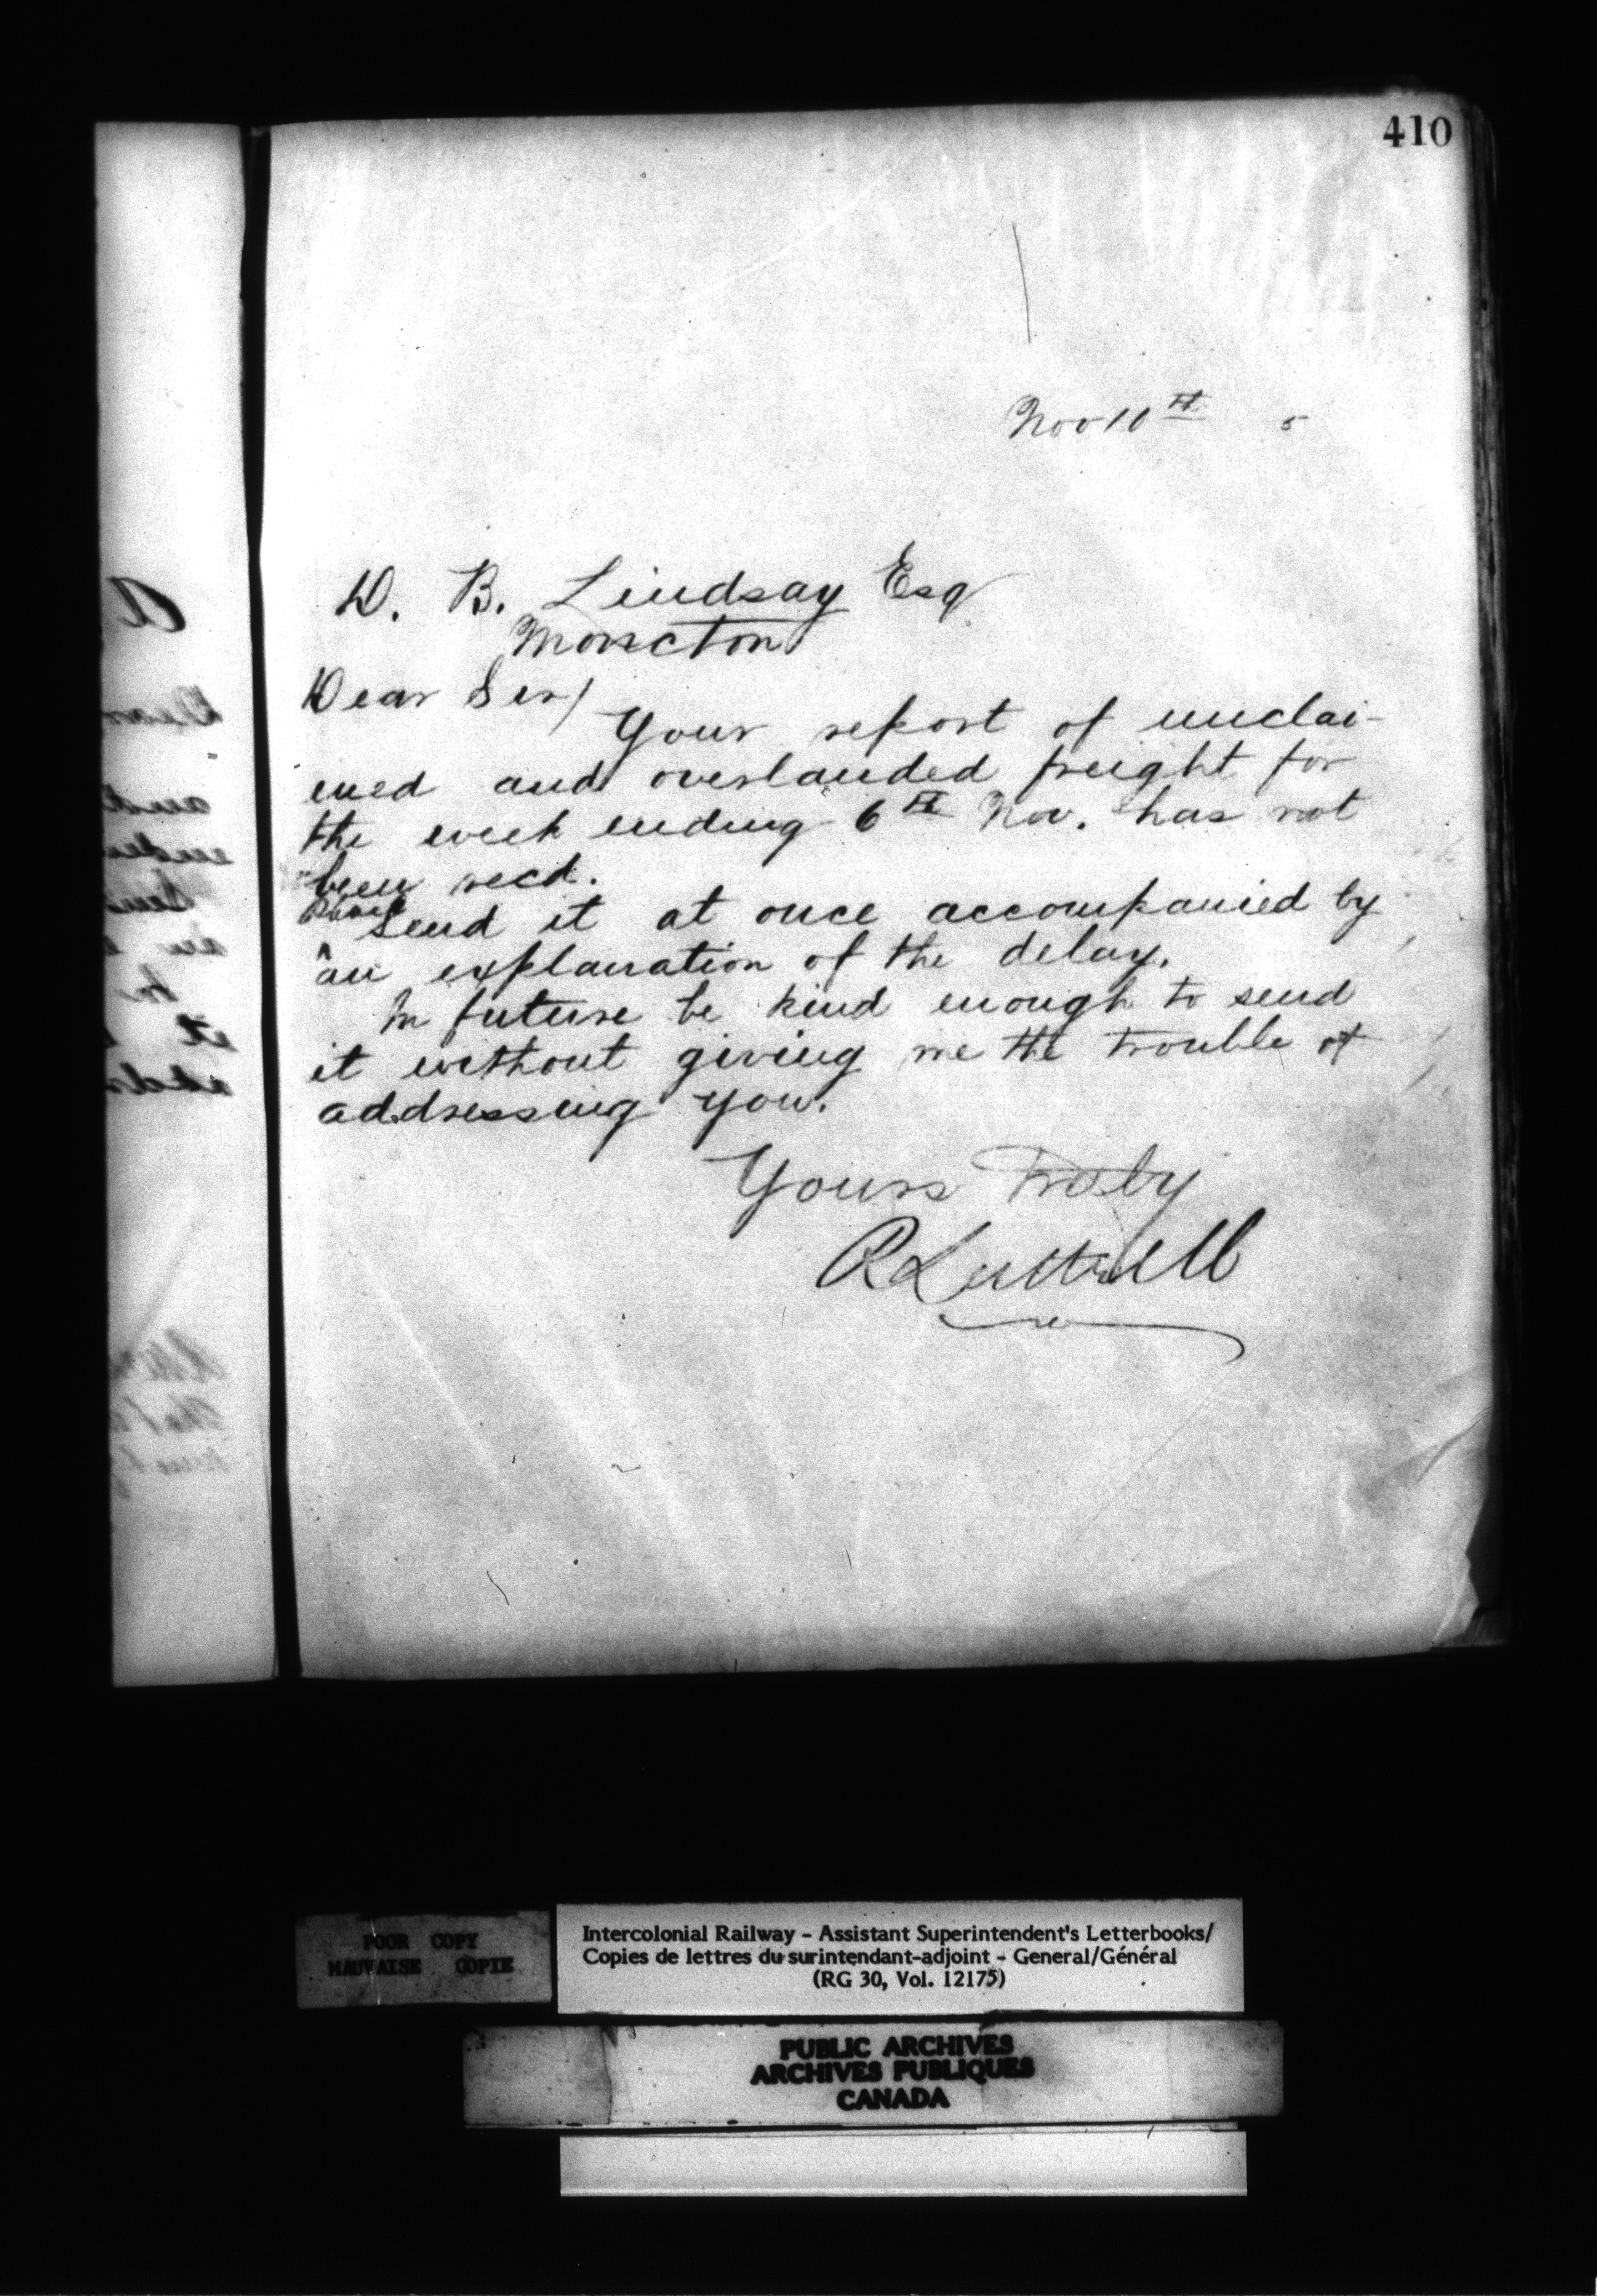 410
Nov 10th 5
D. B. Lindsay Esq
Moncton
Dear Sir/
Your report of unclai-
med and overlanded freight for
the week ending 6th Nov. has not
been recd.
Please
^ Send it at once accompanied by
an explanation of the delay.
In future be kind enough to send
it without giving me the trouble of
addressing you.
Yours Truly
R Luttrell
POOR COPY
MAUVAISE COPIE
Intercolonial Railway - Assistant Superintendent's Letterbooks/
Copies de lettres du surintendant-adjoint - General/Général
(RG 30, Vol. 12175)
PUBLIC ARCHIVES
ARCHIVES PUBLIQUES
CANADA